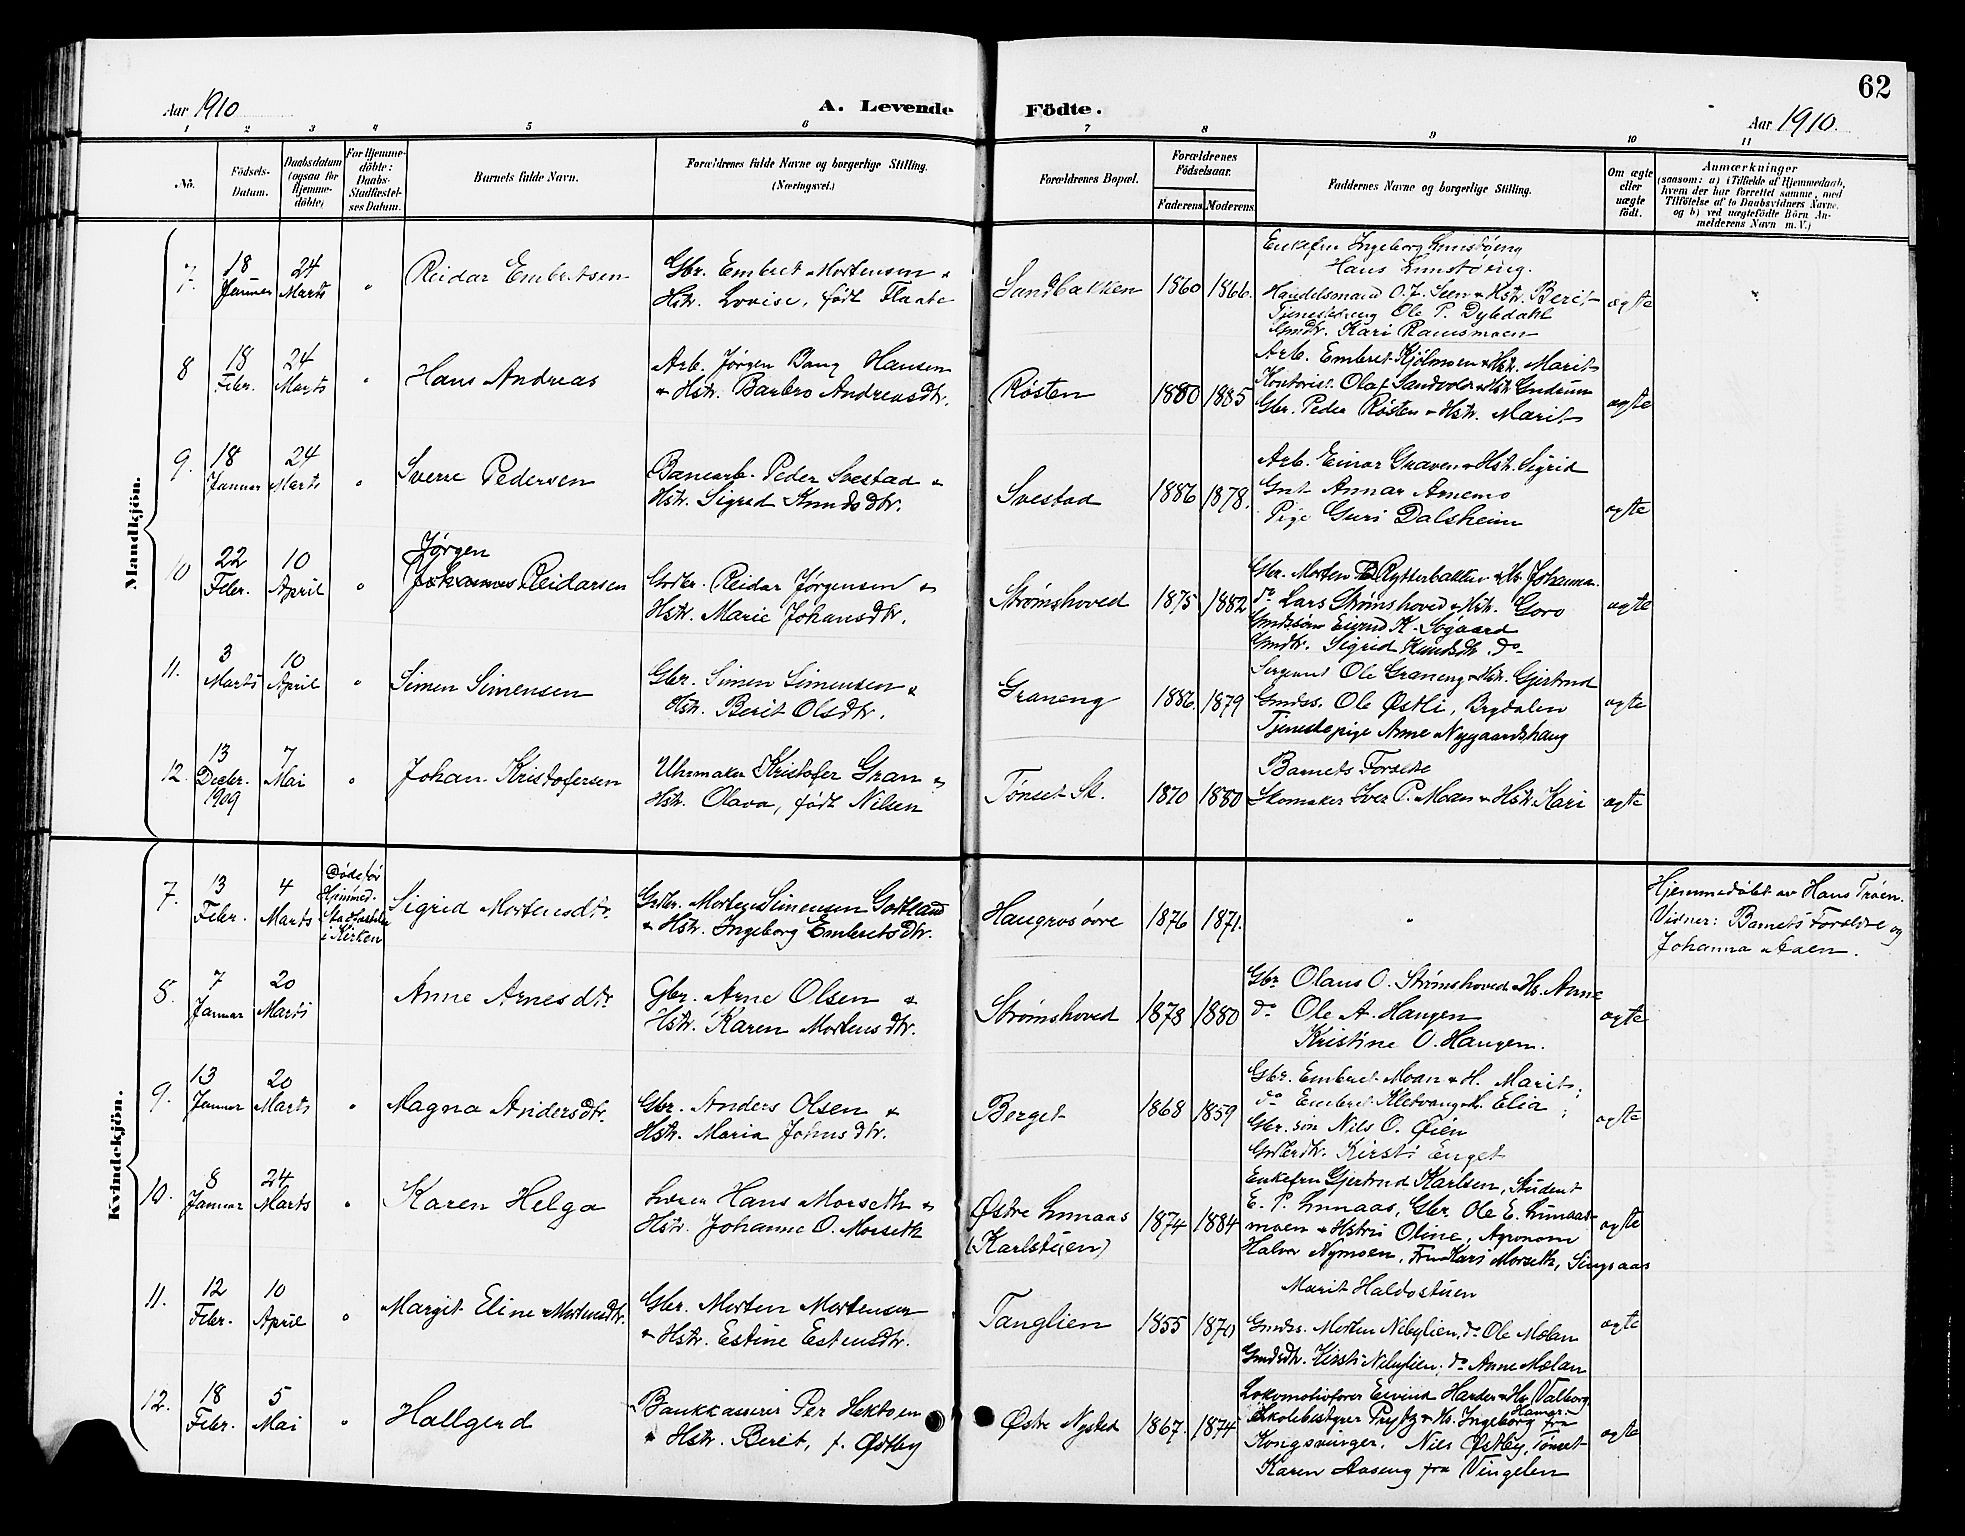 62
Aar 1910
A. Levende Födte.
Aar 1910.
1 2 3 4 5 6 7 8 9 10 11
No.
Födsels-
Datum.
Daabsdatum
(ogsaa for
Hjemme-
döbte)
For Hjemme-
döbte:
Daabs-
Stadfæstel-
ses Datum.
Barnets fulde Navn.
Forældrenes fulde Navne og borgerlige Stilling.
(Næringsvei.)
Forældrenes Bopæl.
Forældrenes
Födselsaar.
Faderens
Moderens
Faddernes Navne og borgerlige Stilling.
Om ægte
eller
uægte
födt.
Anmærkninger
(saasom: a) i Tilfælde af Hjemmedaab,
hvem der har forrettet samme, med
Tilföielse af to Daabsvidners Navne,
og b) ved uægtefödte Börn An-
melderens Navn m. V.)
Mandkjön.
7.
18
Januar
24
Marts
"
Reidar Embretsen
Gbr. Embret Mortensen &
Hstr. Lovise, født Flaate
Sandbakken
1860
1866.
Enkefru Ingeborg
Hans
Handelsmand O. J. Steen & Hstr. Berit
Tjenestedreng Ole P. Dybdahl
Gmdtr. Kari Ramsmoen
ægte
8
18
Febr.
24
Marts
"
Hans Andreas
Arb. Jørgen Bang Hansen
& Hstr. Barbro Andreasdtr.
Røsten
1880
1885
Arb. Embret Kjølmoen & Hstr. Marit
Kontorist Olaf & Hstr. Gudrun
Gbr. Peder Røsten & Hstr. Marit
ægte
9.
18
Januar
24
Marts
"
Sverre Pedersen
Banearb. Peder Svestad &
Hstr. Sigrid Knudsdtr.
Svestad
1886
1878.
Arb. Einar Graven & Hstr. Sigrid
Gmt. Annar Arnemo
Pige Guri Dalsheim
ægte
10
22
Febr.
10
April
"
Jørgen
Johannes Reidarsen
Grdbr. Reidar Jørgensen &
Hstr. Marie Johansdtr.
Strømshoved
1875
1882
Gbr. Morten Rytterbakken & Hs. Johanna.
do Lars Strømshoved & Hstr. Goro
Gmdssøn Eivind K. Søgaard
Gmdtr. Sigrid Knudsdtr. do
ægte
11.
3
Marts
10
April
"
Simen Simensen
Gbr. Simen Simensen &
Hstr. Berit Olsdtr.
Graneng
1886.
1879
Sergeant Ole Graneng & Hstr. Gjertrud
Gmdss. Ole Østli, Brydalen
Tjenestepige Anne Nygaardshaug
ægte
12.
13
Decbr.
1909
7
Mai
"
Johan Kristofersen
Uhrmaker Kristofer Gran &
Hstr. Olava, født Nilsen
Tønset St.
1870
1880
Barnets Forældre
Skomaker Iver P. Moan & Hstr. Kari
ægte
Kvindekjön.
7.
13
Febr.
4
Marts
Døde før
Stadfæstelse
i Kirken
Sigrid Mortensdtr.
Grdbr. Morten Simensen Gotland
& Hstr. Ingeborg Embretsdtr.
Haugrosøvre
1876
1871.
"
Hjemmedøbt av Hans Trøen.
Vidner: Barnets Forældre og
Johanna Aaen.
8.
7
Januar
20
Marts
Anne Arnesdtr.
Gbr. Arne Olsen &
Hstr. Karen Mortensdtr.
Strømshoved
1878
1880
Gbr. Olaus O. Strømshoved & Hs. Anne
do Ole A. Haugen
Kristine O. Haugen.
ægte
9.
13
Januar
20
Marts
"
Magna Andersdtr.
Gbr. Anders Olsen &
Hstr. Maria Johnsdtr.
Berget
1868
1859
Gbr. Embret Moan & H. Marit;
do Embret Kletvang & H. Elia;
Gbr. søn Nils O. Øien
Grdbrdtr. Kirsti Enget
ægte
10.
8
Januar
24
Marts
"
Karen Helga
Lærer Hans Morseth &
Hstr. Johanne O. Morseth
Østre Lunaas
(Karlstuen)
1874
1884
Enkefru Gjertrud Karlsen, Student
E. P. Lunaas, Gbr. Ole E. Lunaas-
moen & Hstru Oline, Agronom
Halvor Nymoen, Fru Kari Morseth, Singsaas
ægte
11.
12
Febr.
10
April
"
Margit Eline Mortensdtr.
Gbr. Morten Mortensen
& Hstr. Estine Estensdtr.
Tanglien
1855
1870
Marit Haldostuen
Gmdss. Morten Nebylien, do Ole Mælan
Gmdsdtr. Kirsti Nebylien, do Anne Mælan
ægte
12.
18
Febr.
5
Mai
"
Hallgerd
Bankkasserer Per Hektoen
& Hstr. Berit, f. Østby
Østre Nysted
1867.
1874
Lokomotivfører Eivind Harder & Hs. Valborg
Hamar.
Skolebestyrer Prytz & Hs. Ingeborg fra
Kongsvinger. Nils Østby, Tønset
Karen Aaseng fra Vingelen
ægte